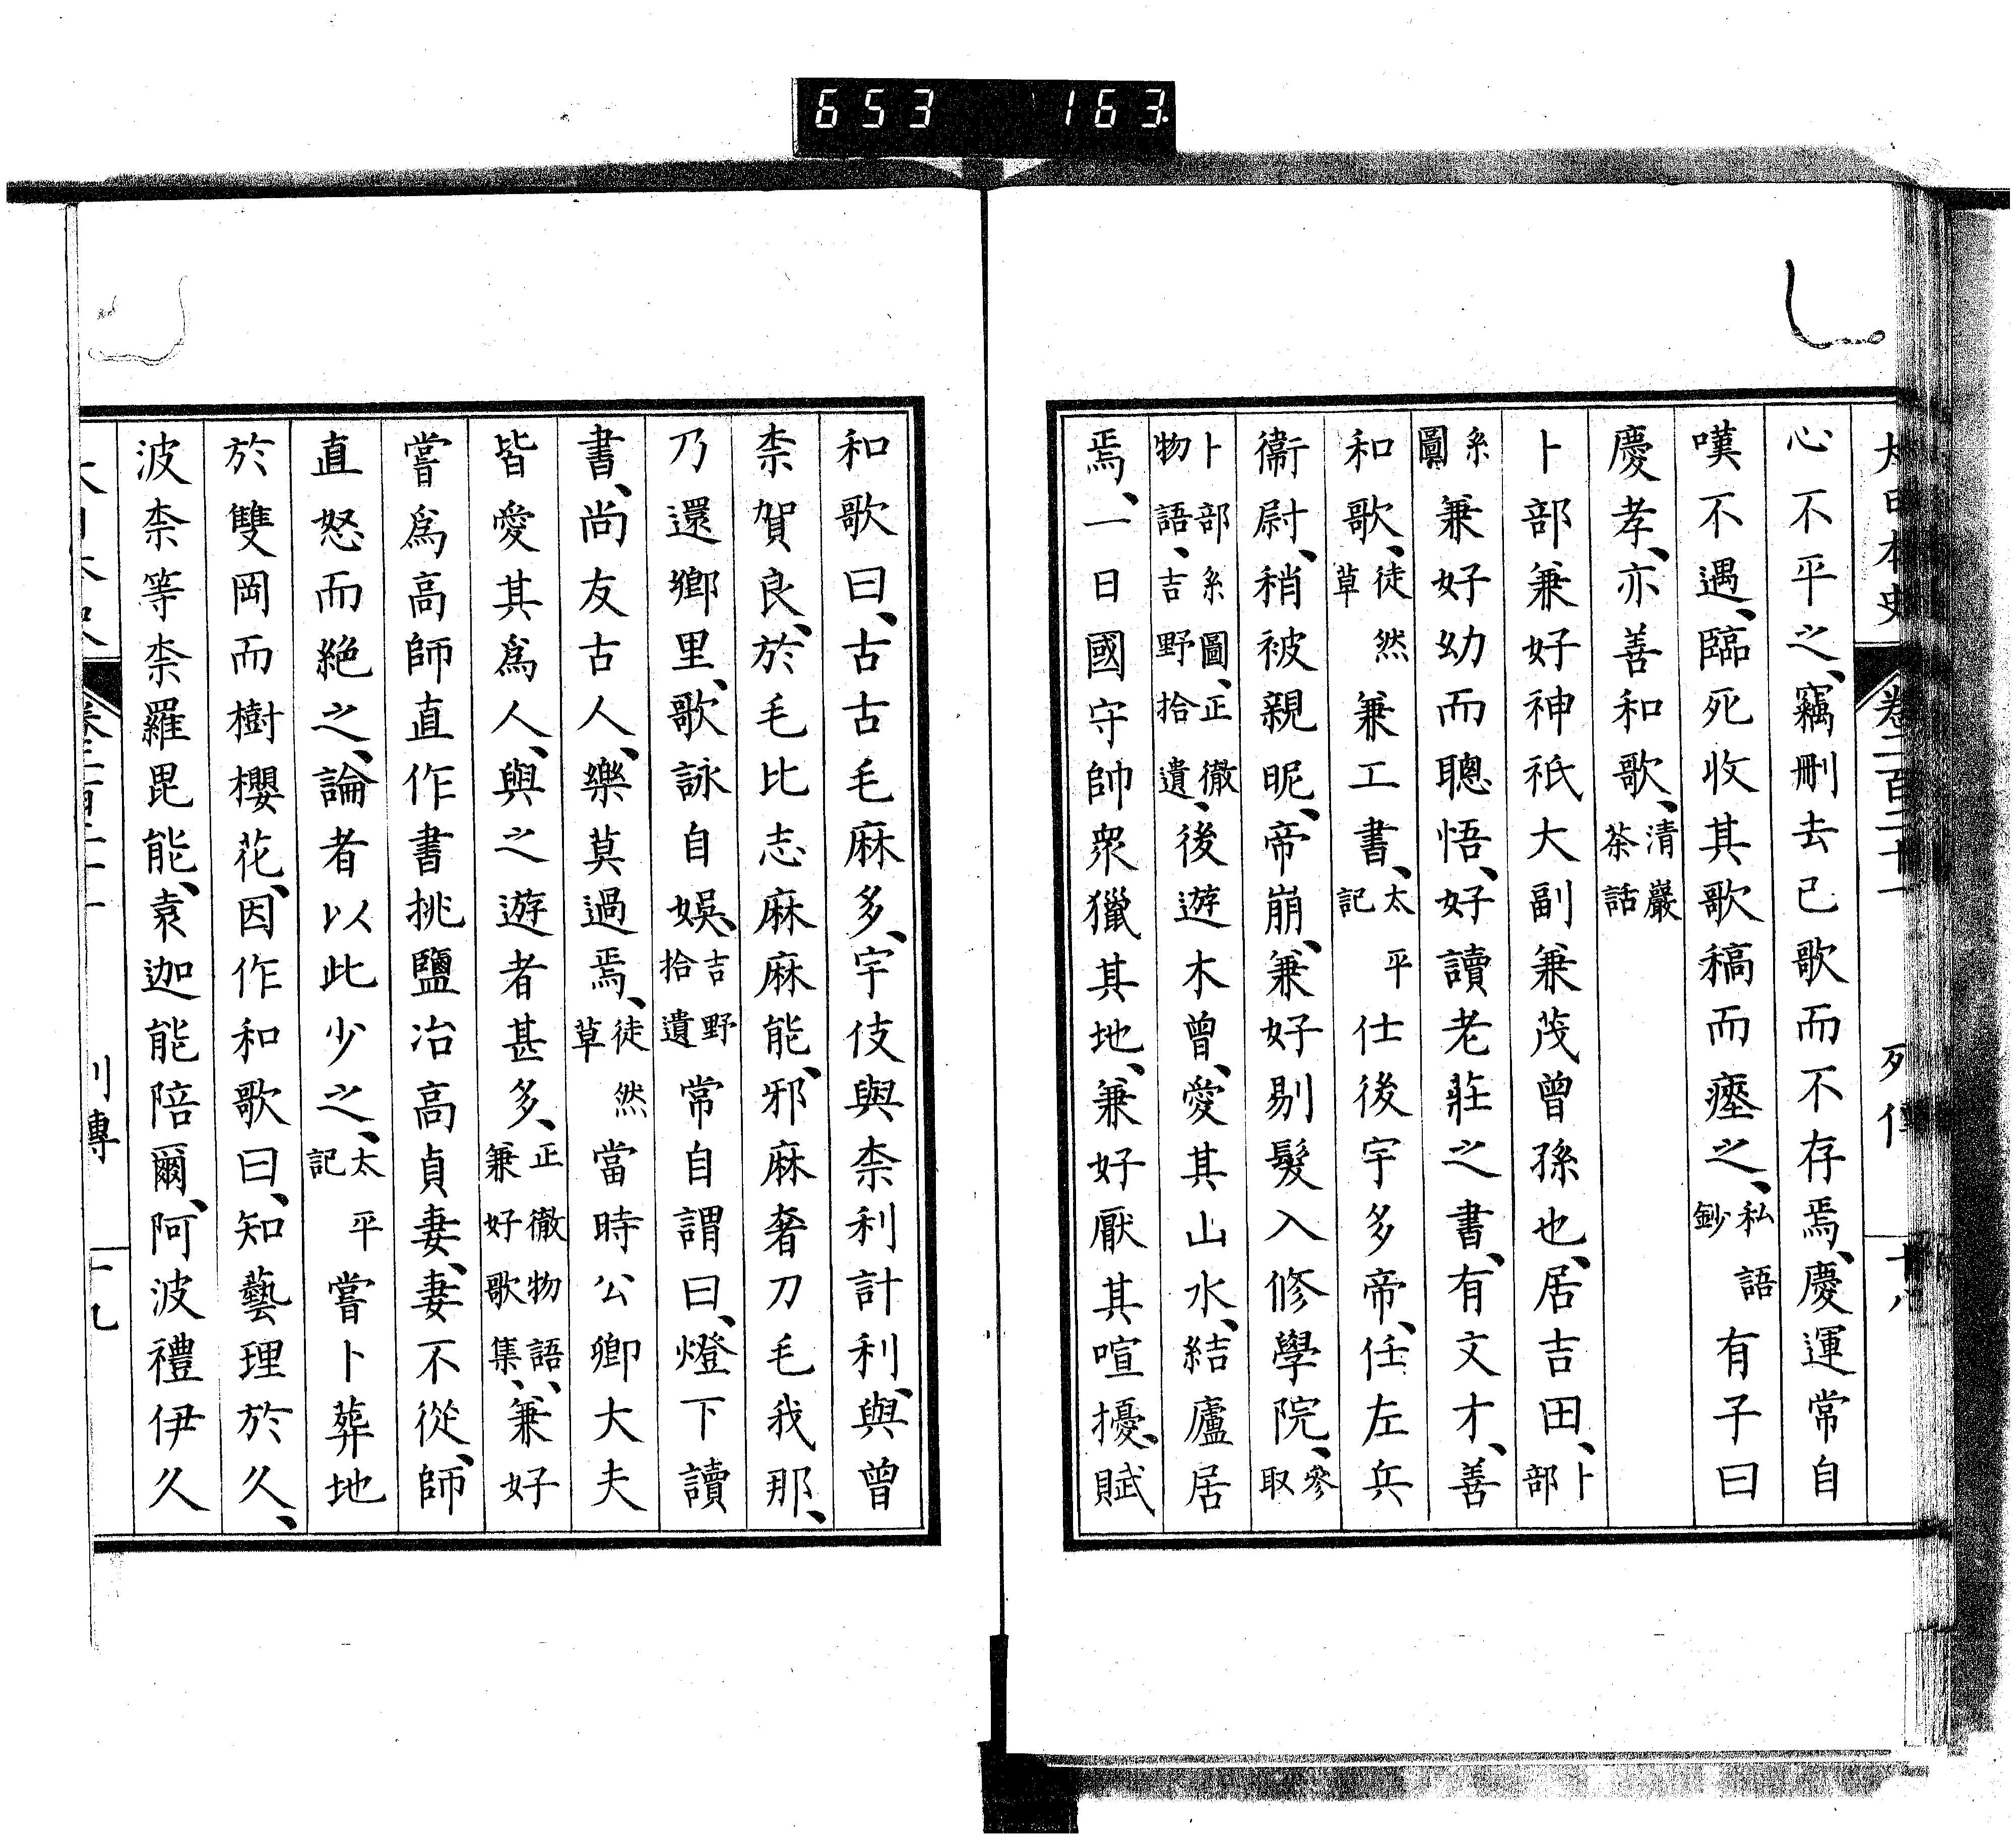 653 163.
大日本史 卷二百二十一 列傳 十八
心不平之、竊刪去己歌而不存焉、慶運常自
嘆不遇、臨死收其歌稿而瘞之、私語鈔有子曰
慶孝、亦善和歌、清巖茶話
卜部兼好神祇大副兼茂曾孫也、居吉田、卜部
系圖兼好幼而聰悟、好讀老莊之書、有文才、善
和歌、徒然草兼工書、太平記仕後宇多帝、任左兵
衞尉、稍被親昵、帝崩、兼好剔髮入修學院、參取
卜部系圖、正徹物語、吉野拾遺、後遊木曾、愛其山水、結廬居
焉、一日國守帥衆獵其地、兼好厭其喧擾、賦
和歌曰、古古毛麻多、宇伎與柰利計利、與曾
柰賀良、於毛比志麻麻能、邪麻奢刀毛我那、
乃還鄉里、歌詠自娛、吉野拾遺常自謂曰、燈下讀
書、尚友古人、樂莫過焉、徒然草當時公卿大夫
皆愛其爲人、與之遊者甚多、正徹物語、兼好歌集、兼好
嘗爲高師直作書挑鹽冶高貞妻、妻不從、師
直怒而絕之、論者以此少之、太平記嘗卜葬地
於雙岡而樹櫻花、因作和歌曰、知藝理於久、
波柰等柰羅毘能、袁迦能陪爾、阿波禮伊久
列傳